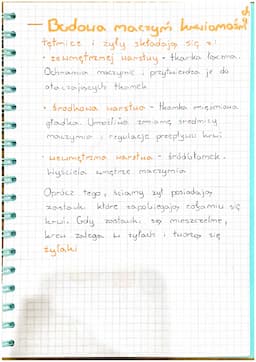 - Budowa naczyń krwionośnych
tętnice i żyły składają się z:
· zewnętrznej warstwy - tkanka łączna.
Ochrania naczynie i przytwierdza je do
otaczających tkanek
· środkowa warstwa - tkanka mięśniowa
gładka. Umożliwia zmianę średnicy
naczynia i regulację przepływu krwi
· wewnętrzna warstwa - śródbłonek.
Wyściela wnętrze naczynia
Oprócz tego, ściany żył posiadają
zastawki które zapobiegają cofaniu się
krwi. Gdy zastawki są nieszczelne,
krew zalega w żyłach i tworzą się
żylaki